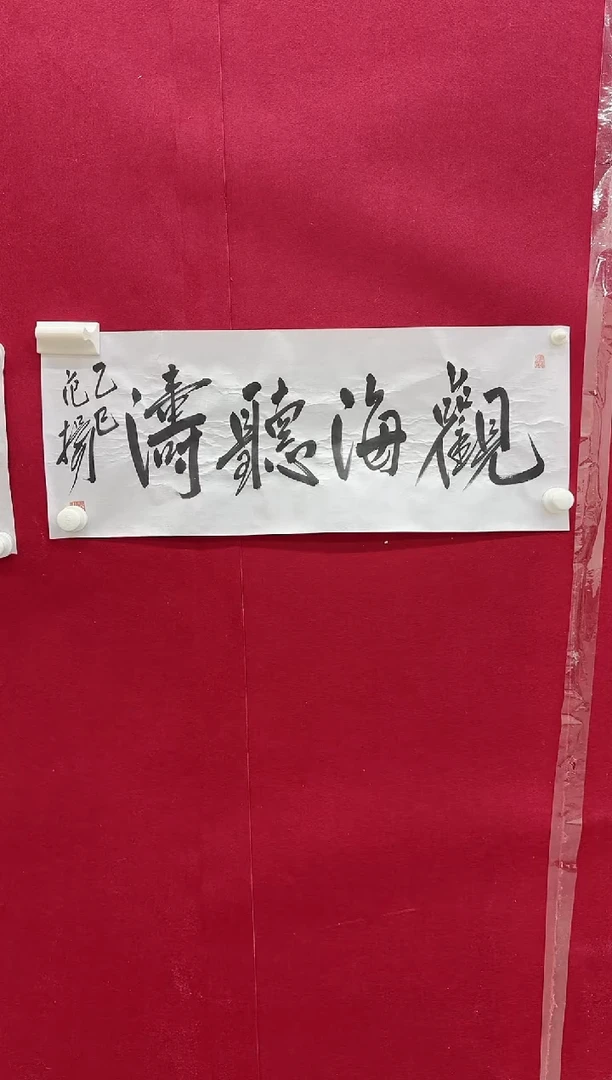 觀海聽濤
乙巳
范揚